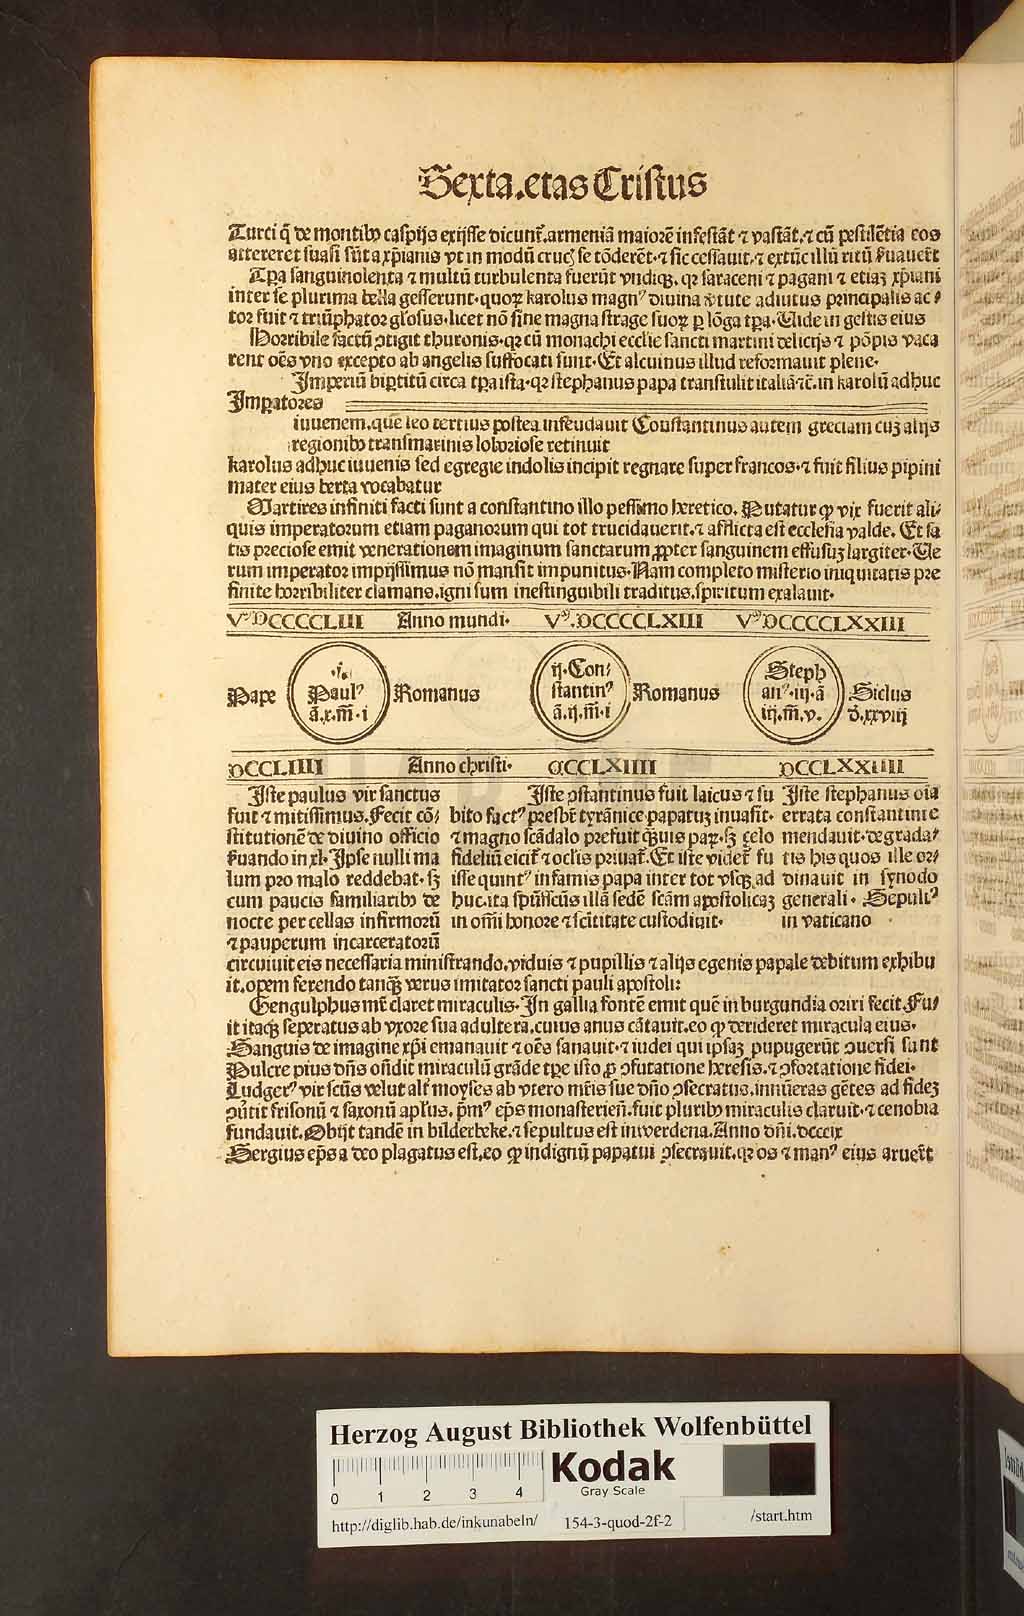 Sexta.etas Cristus
Turci q̄ de montibꝫ caspijs exijsse dicunt̄.armeniā maiorē infestāt ⁊ vastāt.⁊ cū pestilētia eos
attereret suasi sūt a xp̄ianis vt in modū crucꝭ se tōderēt.⁊ sic cessauit.⁊ extūc illū ritū ẜuauerūt
Tpa sanguinolenta ⁊ multū turbulenta fuerūt vndiqꝫ. qꝛ saraceni ⁊ pagani ⁊ etiaꝫ xp̄iani
inter se plurima bella gesserunt.quoꝝ karolus magnꝰ diuina v̄tute adiutus principalis ac⸗
tor fuit ⁊ triūphator glosus.licet nō sine magna strage suoꝝ ꝑ lōga tpa.Uide in gestis eius
Horribile factū ɔtigit thuronis.qꝛ cū monachi ecclie sancti martini delicijs ⁊ pōpis vaca
rent oēs vno excepto ab angelis suffocati sunt.Et alcuinus illud reformauit plene.
Imperiū bipertitū circa tpa ista.qꝛ stephanus papa transtulit italiā ⁊c̄.in karolū adhuc
Imꝑatores
iuuenem.quē leo tertius postea infeudauit Constantinus autem greciam cuꝫ alijs
regionibꝫ transmarinis loboriose retinuit
karolus adhuc iuuenis sed egregie indolis incipit regnare super francos.⁊ fuit filius pipini
mater eius berta vocabatur
Martires infiniti facti sunt a constantino illo pessimo heretico. Putatur ꝙ vix fuerit ali⸗
quis imperatorum etiam paganorum qui tot trucidauerit.⁊ afflicta est ecclesia valde. Et sa
tis preciose emit venerationem imaginum sanctarum ꝓpter sanguinem effusuꝫ largiter.Ue
rum imperator imprijssimus nō mansit impunitus.Nam completo misterio iniquitatis pre
finite horribiliter clamans.igni sum inestinguibili traditus.spiritum exalauit.
Vᵐ DCCCCCLIII Anno mundi. Vᵐ.DCCCCCLXIII Vᵐ DCCCCCLXXIII
Pape
.j.
Paulꝰ
ā.x.m̄.i
Romanus
ij.Con⸗
stantinꝰ
ā.ij.m̄.i
Romanus
Steph
anꝰ.iij.ā
iij.m̄.v.
Siclus
d̄.xxviij
DCCLIIII Anno christi. DCCLXIIII DCCLXXIIII
Iste paulus vir sanctus
fuit ⁊ mitissimus.Fecit cō⸗
stitutionē de diuino officio
ẜuando in xl.Ipse nulli ma
lum pro malo reddebat.sꝫ
cum paucis familiaribꝫ de
nocte per cellas infirmorū
⁊ pauperum incarceratorū
Iste ɔstantinus fuit laicus ⁊ su
bito factꝰ presbt̄ tyrānice papatuꝫ inuasit.
⁊ magno scādalo prefuit qͣuis paꝝ.sꝫ zelo
fideliū eicit̄ ⁊ oclis priuat̄.Et iste videt̄ fu
isse quintꝰ infamis papa inter tot vsqꝫ ad
huc.ita spūssctūs illā sedē scām apostolicaꝫ
in omī honore ⁊ sctītate custodiuit.
Iste stephanus oīa
errata constantini e
mendauit.degrada⸗
tis his quos ille or⸗
dinauit in synodo
generali. Sepultꝰ
in vaticano
circuiuit eis necessaria ministrando.viduis ⁊ pupillis ⁊ alijs egenis papale debitum exhibu
it.opem ferendo tanqͣꝫ verus imitator sancti pauli apostoli:
Gengulphus mr̄t claret miraculis.In gallia fontē emit quē in burgundia oriri fecit.Fu⸗
it itaqꝫ seperatus ab vxore sua adultera.cuius anus cātauit.eo ꝙ derideret miracula eius.
Sanguis de imagine xp̄i emanauit ⁊ oēs sanauit.⁊ iudei qui ipsaꝫ pupugerūt ɔuersi sunt
Pulcre pius dn̄s ondit miraculū grāde tpe isto ꝓ ɔfutatione heresis.⁊ ɔfortatione fidei.
Ludgerꝰ vir scūs velut alt̄ moyses ab vtero mr̄is sue dn̄o ɔsecratus.innūeras gētes ad fideꝫ
ɔuertit frisonū ⁊ saxonū aplūs. p̄mꝰ ep̄s monasterien̄.fuit pluribꝫ miraculis claruit.⁊ cenobia
fundauit.Obijt tandē in bilderbeke.⁊ sepultus est in werdena.Anno dn̄i.dcccix
Sergius ep̄s a deo plagatus est.eo ꝙ indignū papatui ɔsecrauit.qꝛ os ⁊ manꝰ eius aruerūt
Herzog August Bibliothek Wolfenbüttel
0 1 2 3 4
Kodak
Gray Scale
http://diglib.hab.de/inkunabeln/ 154-3-quod-2f-2 /start.htm